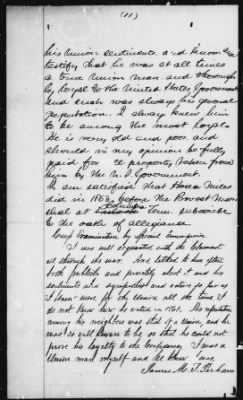 (11)
his Union sentiments and know &
testify that he was at all times
a true Union man and thoroughly
loyal to the United States Government
and such was always his general
reputation. I always knew him
to be among the most loyal.
He is very old and poor and
should in my opinion be fully
paid for property taken from
him by the U.S. Government.
I am satisfied that Miles
did in 1863, before the Provost Mar
shal at Tenn subscribe
to the oath of allegiance.
Cross Examination by Special Commissioner
I was well acquainted with the Claimant
all through the war. And talked to him often
both publicly and privately about it and his
sentiments and sympathies and votes so far as
I knew were for the Union all the time I
do not know how he voted in 1861. His reputation
among his neighbors was that of a Union, and he
was so well known to be so that he could not
prove his loyalty to the Confederacy. I was a
Union man myself and he knew
James M. T. Parham